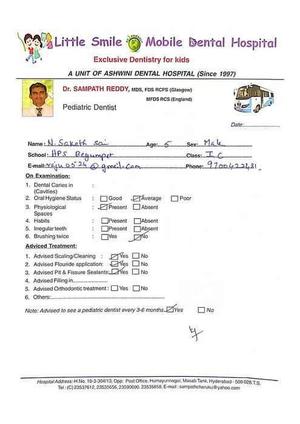 Little Smile Mobile Dental Hospital
Exclusive Dentistry for kids
A UNIT OF ASHWINI DENTAL HOSPITAL (Since 1997)
Dr. SAMPATH REDDY, MDS, FDS RCPS (Glasgow)
MFDS RCS (England)
Pediatric Dentist
Date:
Name: N. Saketh sai Age: 5 Sex: Male
School: HPS Begumpet Class: I C
E-mail: @gmail.com Phone:
On Examination:
1. Dental Caries in
(Cavities)
2. Oral Hygiene Status : Good Average Poor
3. Physiological : Present Absent
Spaces
4. Habits : Present Absent
5. Irregular teeth : Present Absent
6. Brushing twice : Yes No
Adviced Treatment:
1. Advised Scaling/Cleaning : Yes No
2. Advised Flouride application: Yes No
3. Advised Pit & Fissure Sealants: Yes No
4. Advised Filling in
5. Advised Orthodontic treatment : Yes No
6. Others:
Note: Advised to see a pediatric dentist every 3-6 months. Yes No
Hospital Address: H.No. 10-3-304/13, Opp: Post Office, Humayunnagar, Masab Tank, Hyderabad - 500 028.T.S.